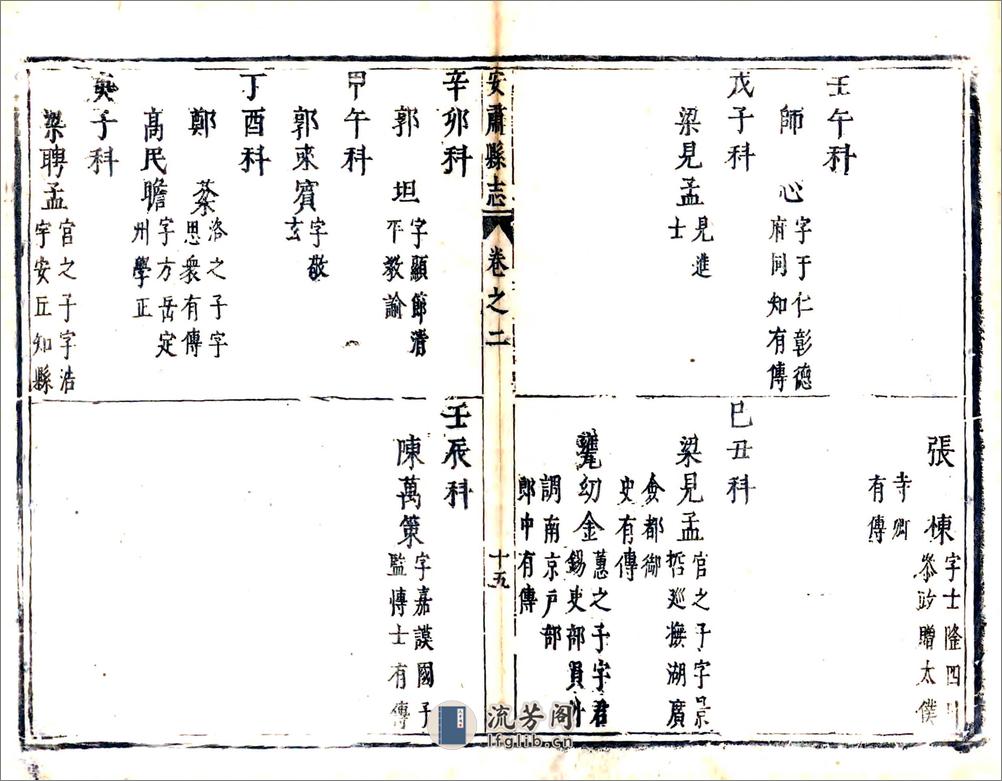 壬午科
師 心
字于仁彰德
府同知有傳
戊子科
梁見孟
見進
士
張 棟
字士隆四川
叅政贈太僕
寺卿
有傳
己丑科
梁見孟
官之子字景
哲廵撫湖廣
僉都御
史有傳
幼金
蕙之子字君
錫吏部員外
調南京戶部
郎中有傳
安肅縣志
卷之二
十五
辛卯科
郭 坦
字顯節清
平教諭
甲午科
郭來賓
字敬
玄
丁酉科
鄭 棻
洛之子字
思衆有傳
高民瞻
字方岳定
州學正
庚子科
梁聘孟
官之子字浩
字安丘知縣
壬辰科
陳萬策
字嘉謨國子
監博士有傳
流芳阁
lfglib.cn